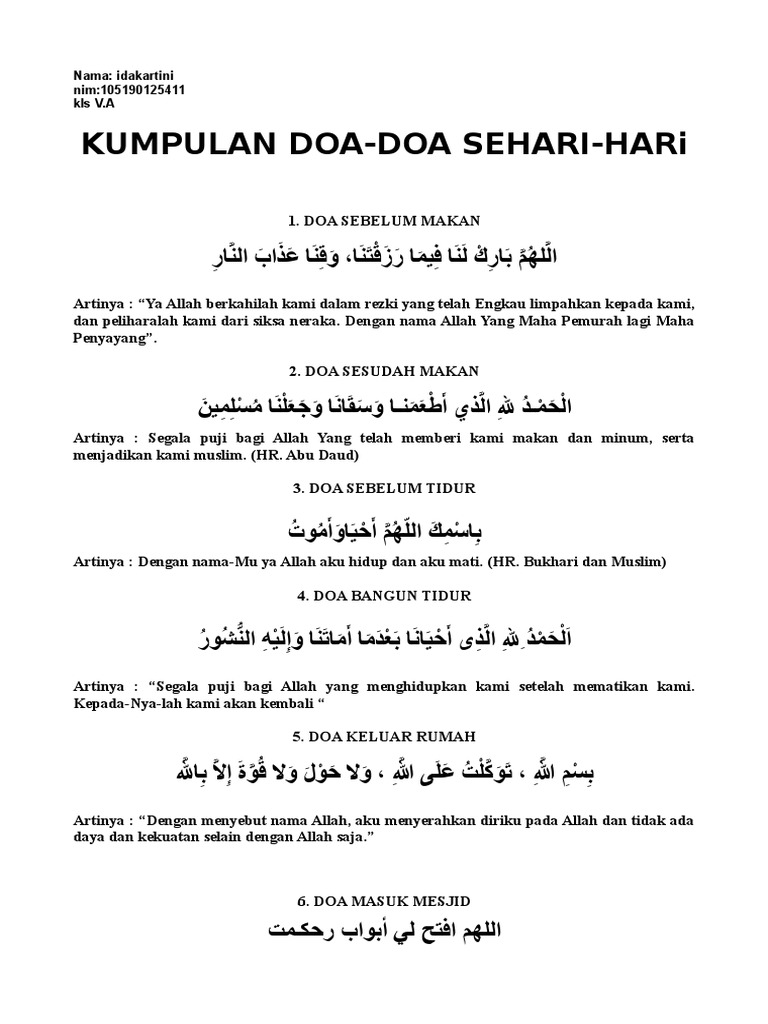 Nama: idakartini
nim:105190125411
kls V.A
KUMPULAN DOA-DOA SEHARI-HARi
1. DOA SEBELUM MAKAN
الَّلهُمَّ بَارِكْ لَنَا فِيمَا رَزَقْتَنَا، وَقِنَا عَذَابَ النَّارِ
Artinya : “Ya Allah berkahilah kami dalam rezki yang telah Engkau limpahkan kepada kami,
dan peliharalah kami dari siksa neraka. Dengan nama Allah Yang Maha Pemurah lagi Maha
Penyayang”.
2. DOA SESUDAH MAKAN
الْحَمْـدُ لِلهِ الَّذي أَطْعَمَنـا وَسَقَانَا وَجَعَلْنَا مُسْلِمِينَ
Artinya : Segala puji bagi Allah Yang telah memberi kami makan dan minum, serta
menjadikan kami muslim. (HR. Abu Daud)
3. DOA SEBELUM TIDUR
بِاسْمِكَ اللّهُمَّ أَحْيَاوَأَمُوتُ
Artinya : Dengan nama-Mu ya Allah aku hidup dan aku mati. (HR. Bukhari dan Muslim)
4. DOA BANGUN TIDUR
اَلْحَمْدُ ِللهِ الَّذِى أَحْيَانَا بَعْدَمَا أَمَاتَنَا وَإِلَيْهِ النُّشُورُ
Artinya : “Segala puji bagi Allah yang menghidupkan kami setelah mematikan kami.
Kepada-Nya-lah kami akan kembali “
5. DOA KELUAR RUMAH
بِسْمِ اللَّهِ ، تَوَكَّلْتُ عَلَى اللَّهِ ، وَلا حَوْلَ وَلا قُوَّةَ إِلاَّ بِاللَّه
Artinya : “Dengan menyebut nama Allah, aku menyerahkan diriku pada Allah dan tidak ada
daya dan kekuatan selain dengan Allah saja.”
6. DOA MASUK MESJID
اللهم افتح لي أبواب رحكـمت